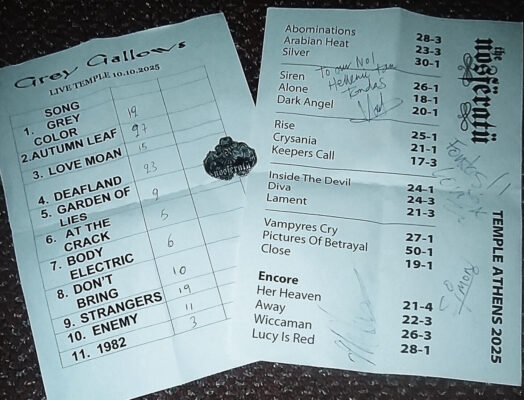 Grey Gallows
LIVE TEMPLE 10.10.2025
SONG
1. GREY
COLOR 19
2.AUTUMN LEAF 97
3. LOVE MOAN 15
4. DEAFLAND 23
5. GARDEN OF
LIES 9
6. AT THE
CRACK 5
7. BODY
ELECTRIC 6
8. DON'T
BRING 10
9. STRANGERS 19
10. ENEMY 11
11. 1982 3
nosferatu
the
nosferatü
TEMPLE ATHENS 2025
Abominations 28-3
Arabian Heat 23-3
Silver 30-1
To our No1
Hellenic Fan
Siren 26-1
Alone 18-1
Dark Angel 20-1
Rise 25-1
Crysania 21-1
Keepers Call 17-3
Inside The Devil 24-1
Diva 24-3
Lament 21-3
Vampyres Cry 27-1
Pictures Of Betrayal 50-1
Close 19-1
Encore
Her Heaven 21-4
Away 22-3
Wiccaman 26-3
Lucy Is Red 28-1